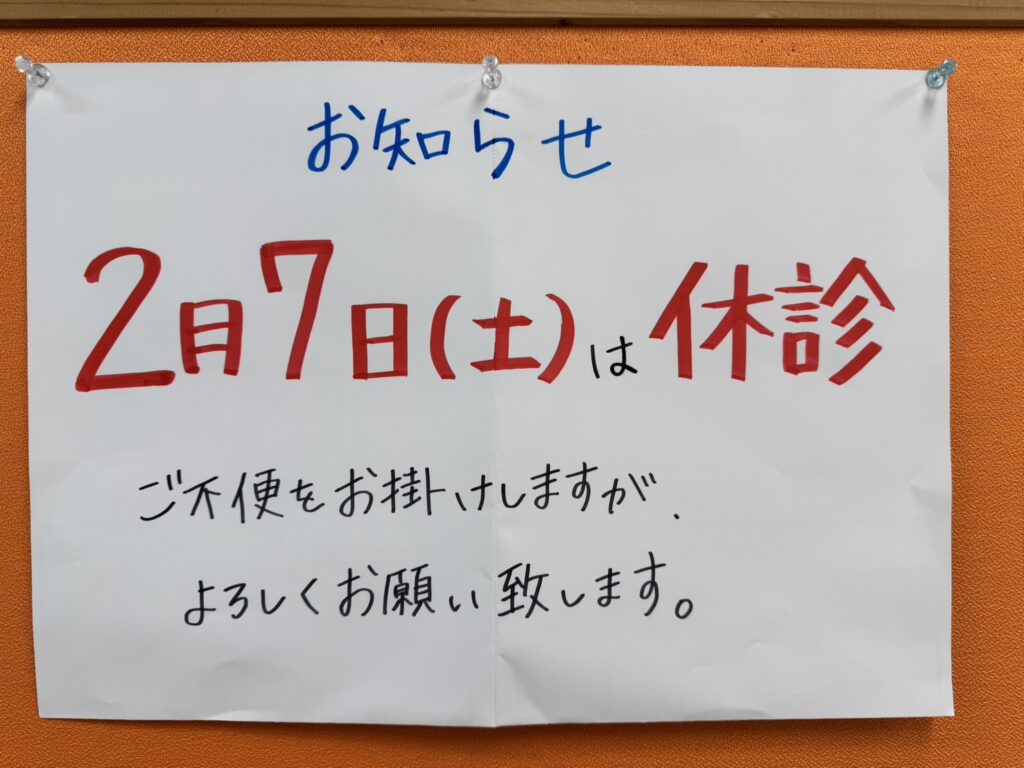 お知らせ
2月7日(土)は休診
ご不便をお掛けしますが、
よろしくお願い致します。